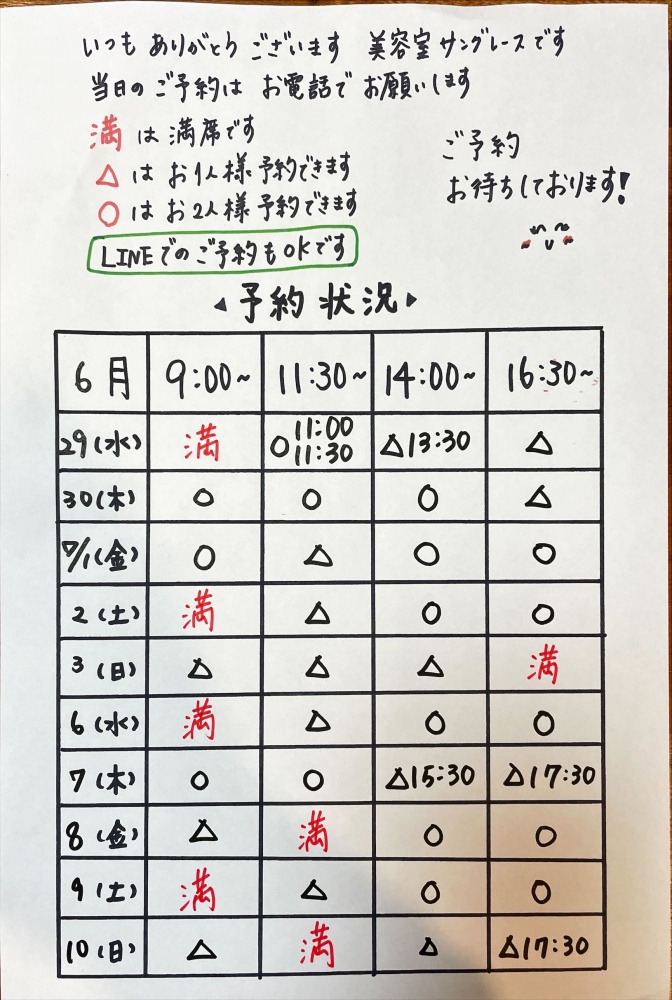 いつも ありがとう ございます 美容室 サングレースです
当日の ご予約は お電話で お願いします
満 は 満席です
△ は お1人様 予約できます
○ は お2人様 予約できます
LINEでの ご予約も OKです
ご予約
お待ちしております!
◀ 予約 状況 ▶
6月 9:00~ 11:30~ 14:00~ 16:30~
29(水) 満 ○11:00 11:30 △13:30 △
30(木) ○ ○ ○ △
7/1(金) ○ △ ○ ○
2(土) 満 △ ○ ○
3(日) △ △ △ 満
6(水) 満 △ ○ ○
7(木) ○ ○ △15:30 △17:30
8(金) △ 満 ○ ○
9(土) 満 △ ○ ○
10(日) △ 満 △ △17:30